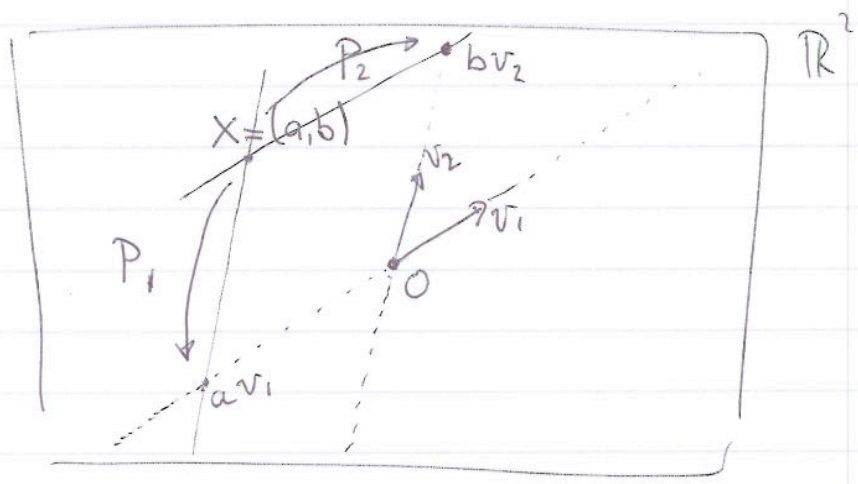 ℝ²
P₂
bv₂
X=(a,b)
v₂
v₁
P₁
O
av₁